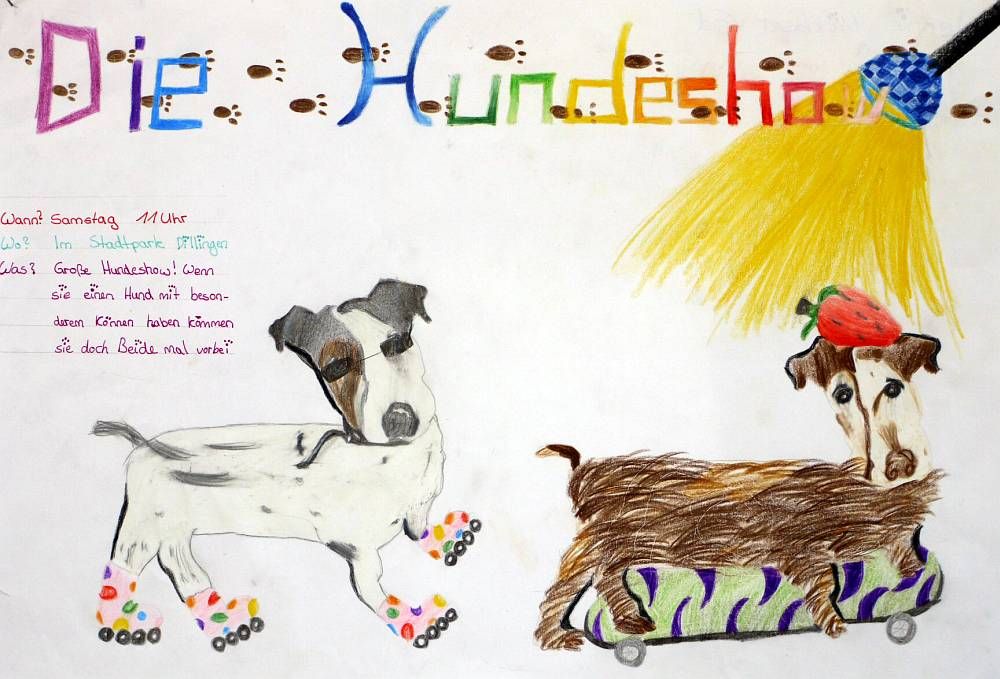 Die Hundeshow
Wann? Samstag 11 Uhr
Wo? Im Stadtpark Dillingen
Was? Große Hundeshow! Wenn
sie einen Hund mit beson-
derem Können haben kommen
sie doch Beide mal vorbei